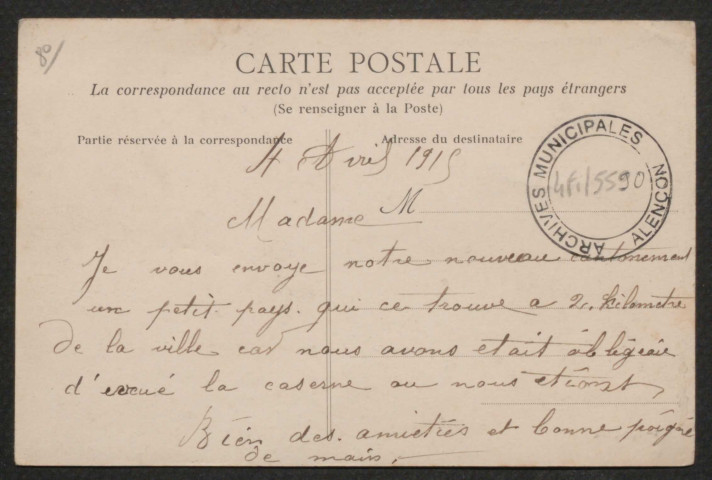 80/
CARTE POSTALE
La correspondance au recto n'est pas acceptée par tous les pays étrangers
(Se renseigner à la Poste)
Partie réservée à la correspondance
Adresse du destinataire
ARCHIVES MUNICIPALES ALENÇON
4Fi/5590
4 Avril 1915
Madame M
Je vous envoye notre nouveau cantonement
un petit pays. qui ce trouve a 2. kilometre
de la ville car nous avons etait obligeaie
d'evcué la caserne ou nous etionst
Bien des. amietiés et bonne poigné
de main.